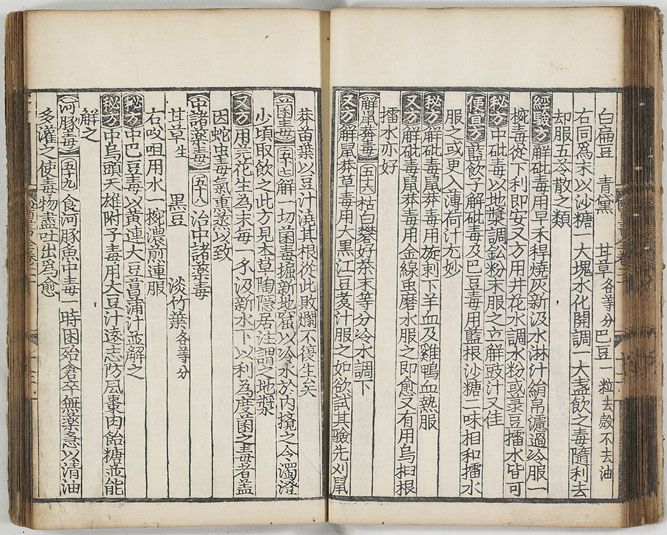 白扁豆　青黛　甘草各等分巴豆一粒去殻不去油
右同為末以沙糖一大塊水化開調一大盞飲之毒隨利去
却服五苓散之類
經驗方解砒毒用早禾稈燒灰新汲水淋汁絹帛濾過冷服一
椀毒從下利即安又方用井花水調水粉或菉豆擂水皆可
秘方中砒毒以地漿調鉛粉末服之立解豉汁又佳
便宜方藍飲子解砒毒及巴豆毒用藍根沙糖二味相和擂水
服之或更入薄荷汁尤妙
秘方解砒毒用旋刺下羊血及雞鴨血熱服
又方解砒毒用金線重磨水服之即愈又有用烏桕根
擂水亦好
解鼠莽毒五十六枯白礬好茶末等分冷水調下
又方解鼠莽草毒用大黑豆煑汁服之如欲試其驗先刈鼠
莽苗葉以豆汁澆其根從此敗爛不復生矣
菌毒五十七解一切菌毒掘新地窟以冷水於内攪之令濁澄
少頃取飲之此方見本草陶隱居注謂之地漿
又方用芫花生為末每一錢汲新水下以利為度菌之毒者蓋
因蛇虫毒氣熏蒸以致
中諸藥毒五十八治中諸藥毒
甘草生　黑豆　淡竹葉各等分
右㕮咀用水一椀濃煎連服
秘方中巴豆毒以黄連大豆菖蒲汁並解之
秘方中烏頭天雄附子毒用大豆汁遠志防風棗肉飴糖並能
解之
河豚毒五十九食河豚魚中毒一時困殆倉卒無藥急以清油
多灌之使毒物盡吐出為愈